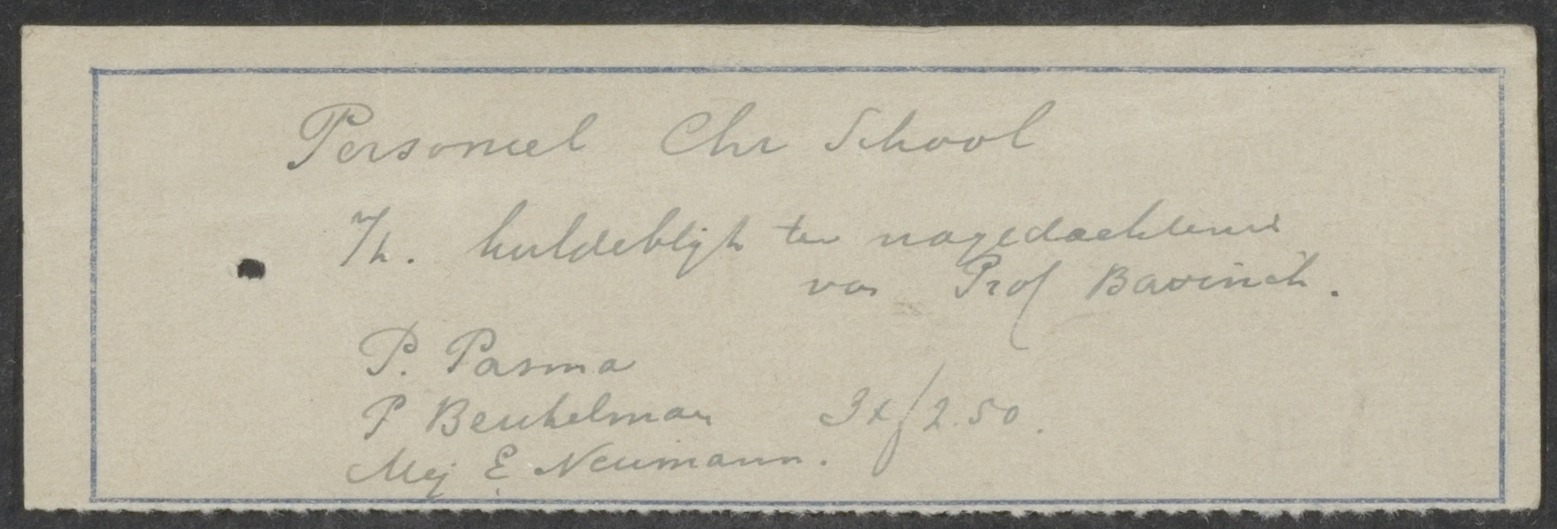 Personeel Chr School
7h. huldeblijk ter nagedachtenis
van Prof Bavinck.
P. Pasma
P Beukelman 3x f 2.50.
Mej E Neumann.